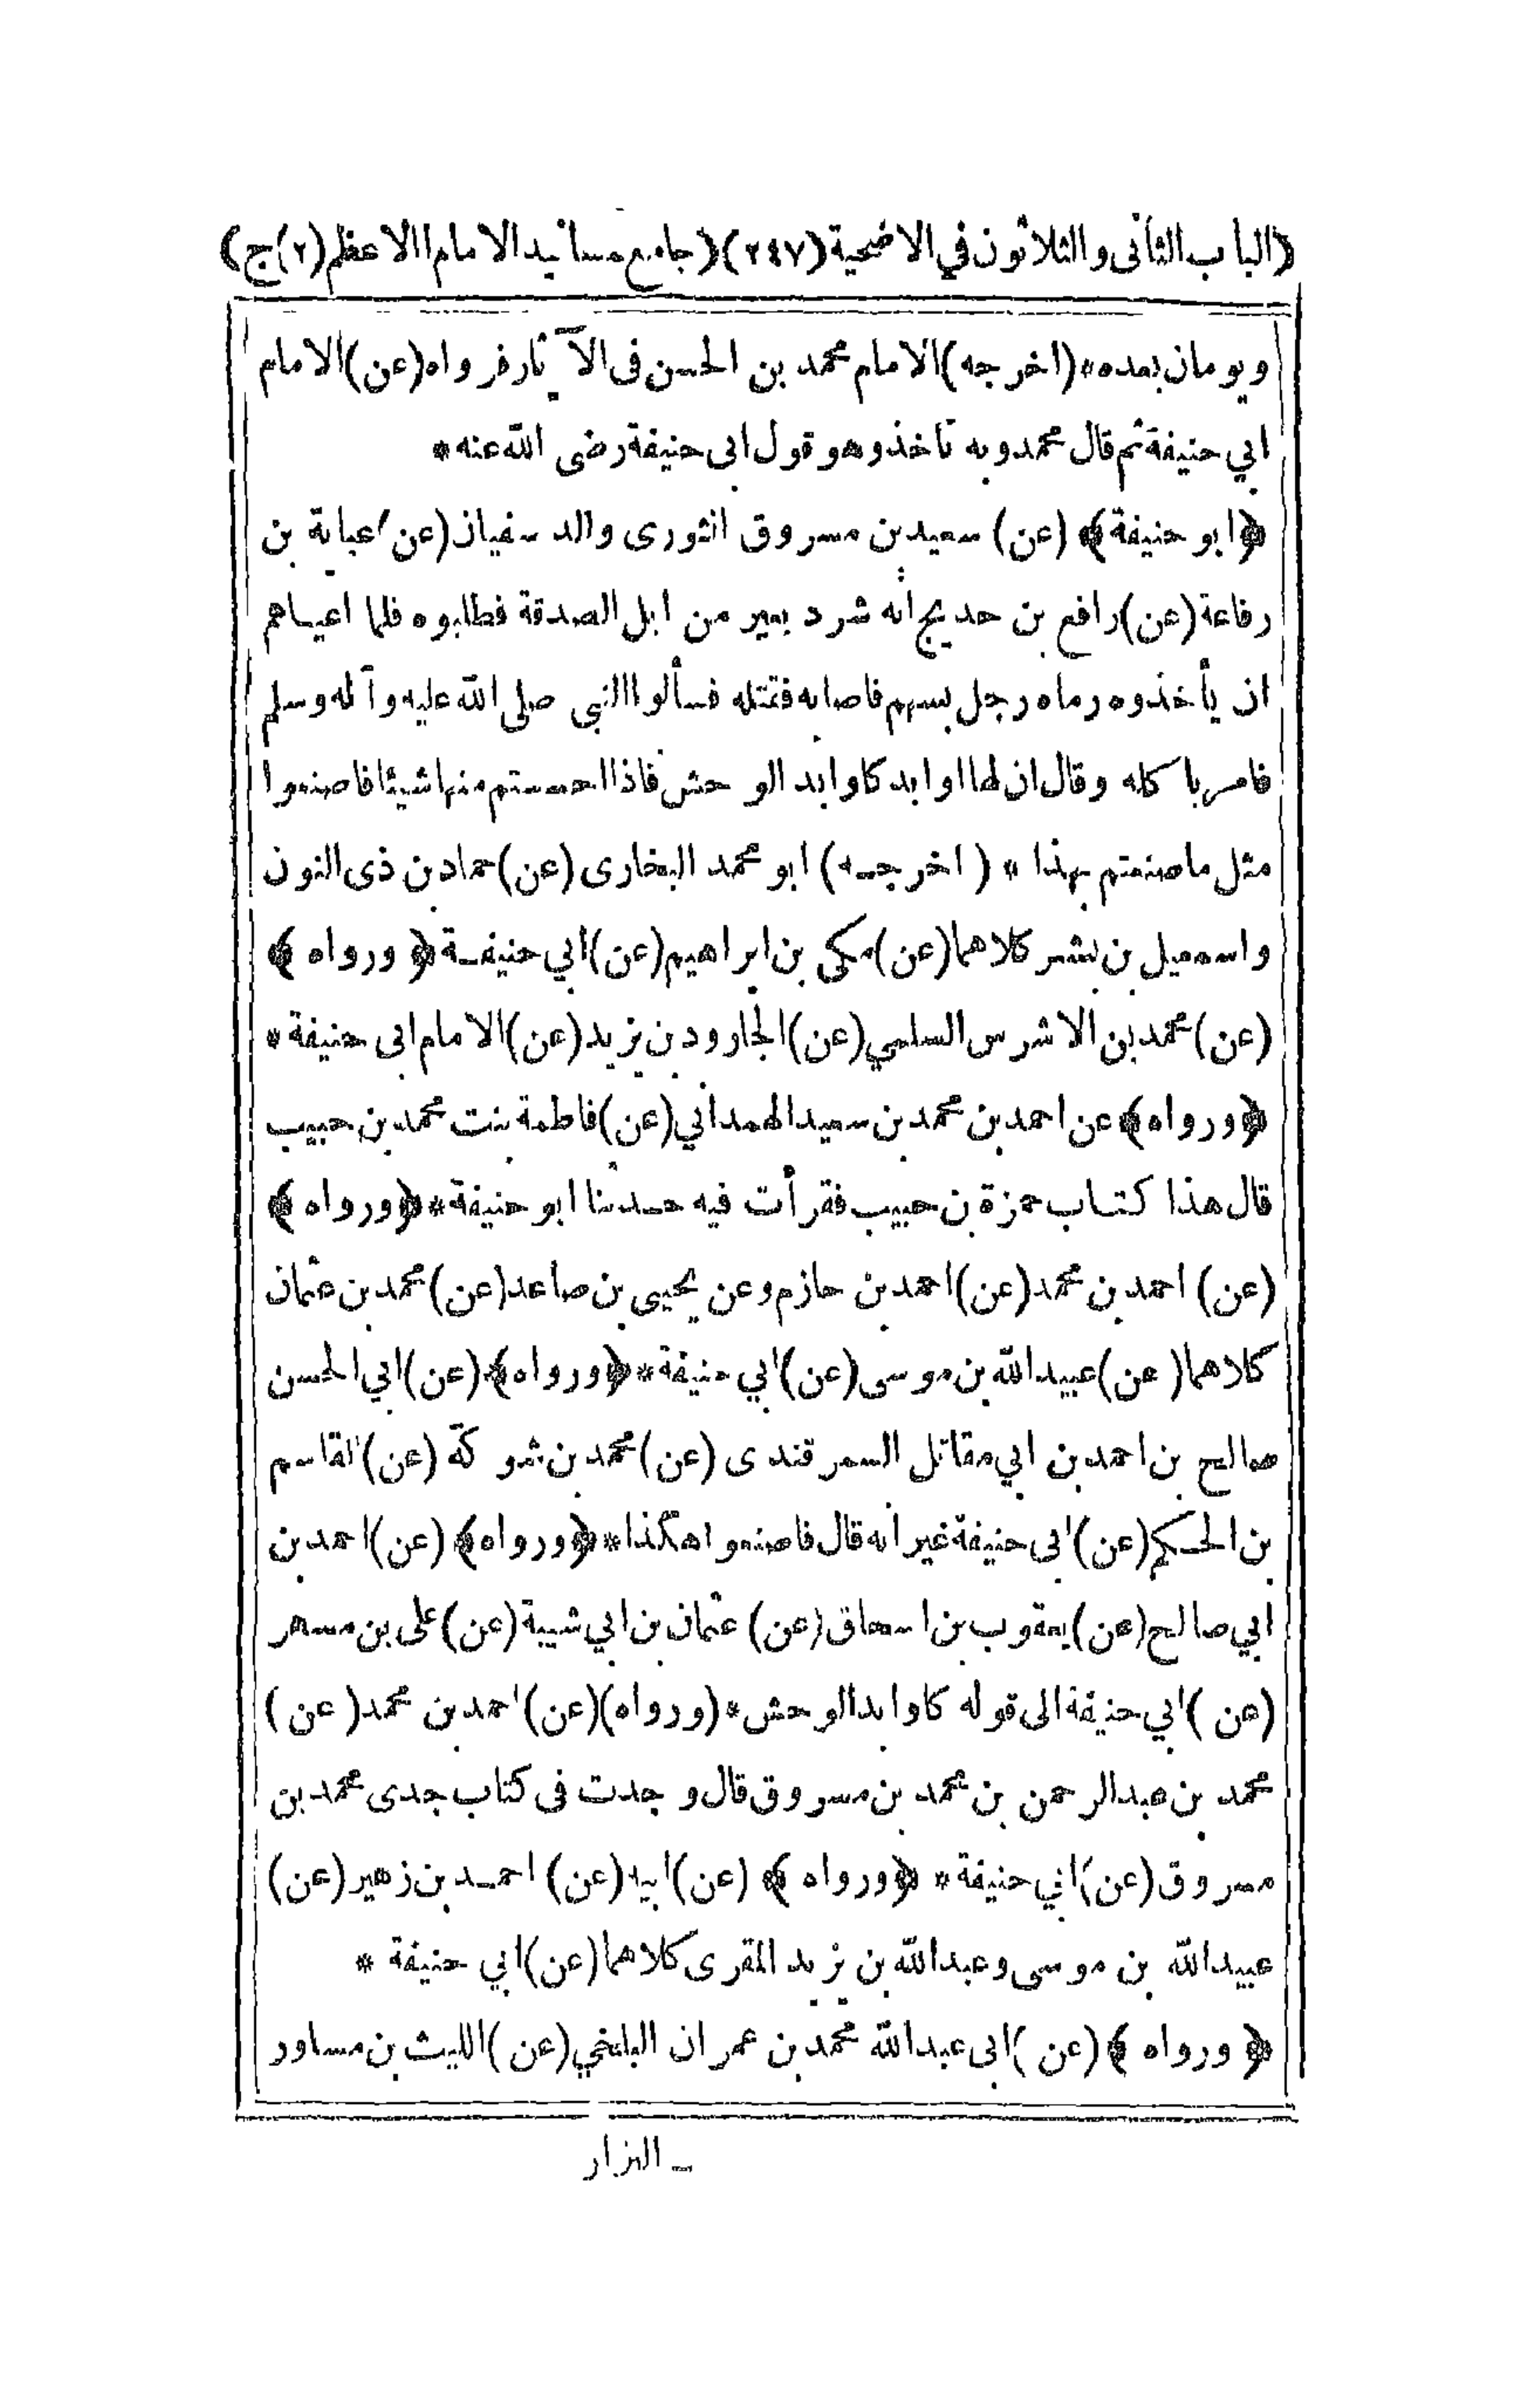 (الباب الثانى والثلاثون في الاضحية (٢٤٧) (جامع مسانيد الامام االاعظم (٢) ج)
ويومان بعده * (اخرجه) الامام محمد بن الحسن فى الآثار فرواه (عن) الامام
ابي حنيفة ثم قال محمد وبه نأخذ وهو قول ابى حنيفة رضى الله عنه *
﴿ابو حنيفة﴾ (عن) سعيد بن مسروق الثورى والد سفيان (عن) عباية بن
رفاعة (عن) رافع بن حديج انه شرد بعير من ابل الصدقة فطلبوه فلما اعياهم
ان يأخذوه رماه رجل بسهم فاصابه فقتله فسألوا النبي صلى الله عليه وآله وسلم
فامر باكله وقال ان لها اوابد كاوابد الوحش فاذا احسستم منها شيئا فاصنعوا
مثل ما صنعتم بهذا * (اخرجه) ابو محمد البخارى (عن) حماد بن ذى النون
واسمعيل بن بشر كلاهما (عن) مكى بن ابراهيم (عن) ابي حنيفة ﴿ورواه﴾
(عن) محمد بن الاشرس السلمي (عن) الجارود بن يزيد (عن) الامام ابى حنيفة *
﴿ورواه﴾ عن احمد بن محمد بن سعيد الهمداني (عن) فاطمة بنت محمد بن حبيب
قال هذا كتاب حمزة بن حبيب فقرأت فيه حدثنا ابو حنيفة * ﴿ورواه﴾
(عن) احمد بن محمد (عن) احمد بن حازم وعن يحيى بن صاعد (عن) محمد بن عثمان
كلاهما (عن) عبيد الله بن موسى (عن) ابي حنيفة * ﴿ورواه﴾ (عن) ابي الحسن
صالح بن احمد بن ابي مقاتل السمرقندى (عن) محمد بن شوكة (عن) القاسم
بن الحكم (عن) ابى حنيفة غير انه قال فاصنعوا هكذا * ﴿ورواه﴾ (عن) احمد بن
ابي صالح (عن) يعقوب بن اسحاق (عن) عثمان بن ابي شيبة (عن) على بن مسهر
(عن) ابي حنيفة الى قوله كاوابد الوحش * (ورواه) (عن) احمد بن محمد (عن)
محمد بن عبد الرحمن بن محمد بن مسروق قال وجدت فى كتاب جدى محمد بن
مسروق (عن) ابي حنيفة * ﴿ورواه﴾ (عن) ابيه (عن) احمد بن زهير (عن)
عبيد الله بن موسى وعبد الله بن يزيد المقرى كلاهما (عن) ابي حنيفة *
﴿ورواه﴾ (عن) ابى عبد الله محمد بن عمران البلخي (عن) الليث بن مساور
ـ البزار